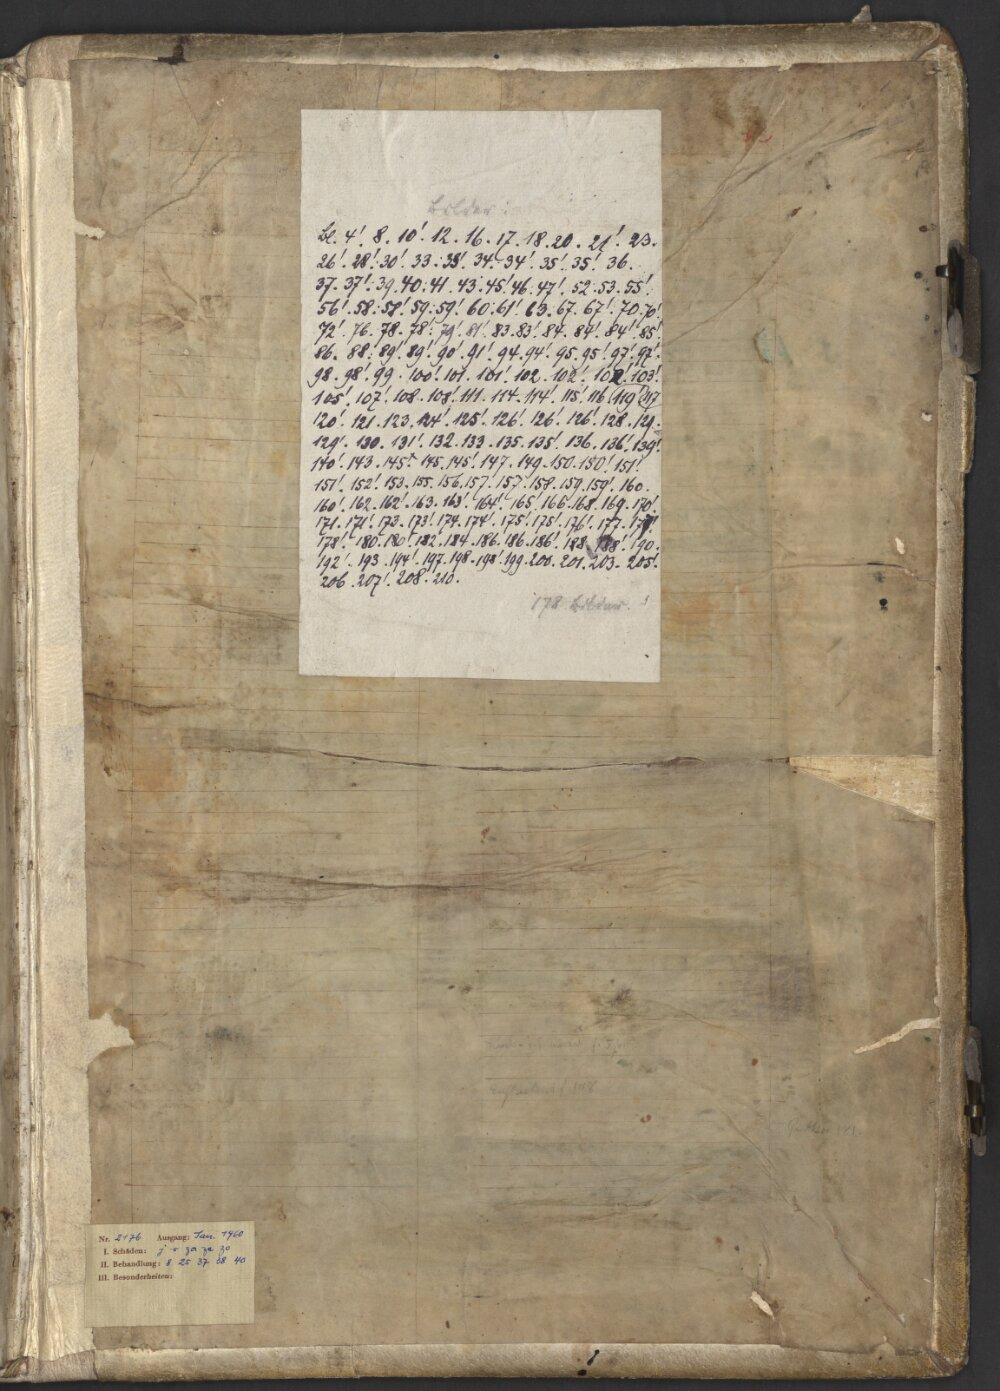 Bilder:
Bl. 4'. 8. 10'. 12. 16. 17. 18. 20. 21'. 23.
26'. 28'. 30'. 33. 33'. 34. 34'. 35'. 35'. 36.
37. 37'. 39. 40. 41. 43. 45' 46. 47'. 52. 53. 55'.
56'. 58. 58'. 59. 59'. 60. 61'. 63. 67. 67'. 70. 70'.
72'. 76. 78. 78'. 79'. 81'. 83. 83'. 84. 84'. 84'. 85'.
86. 88. 89'. 89'. 90'. 91'. 94. 94'. 95. 95'. 97'. 97'.
98. 98'. 99. 100'. 101. 101'. 102. 102'. 102'. 103'.
105'. 107'. 108. 108'. 111. 114. 114'. 115'. 116 (119' (117
120'. 121. 123. 124'. 125'. 126'. 126'. 126'. 128. 129.
129'. 130. 131'. 132. 133. 135. 135'. 136. 136'. 139'.
140'. 143. 145. 145. 145'. 147. 149. 150. 150'. 151'.
151'. 152'. 153. 155. 156. 157. 157'. 158. 159. 159'. 160.
160'. 162. 162'. 163. 163'. 164'. 165' 166. 168. 169. 170'.
171. 171'. 173. 173'. 174. 174'. 175'. 175'. 176'. 177.
178'. 180. 180'. 182. 184. 186. 186. 186'. 188. 188'. 190.
192'. 193. 194'. 197. 198. 198' 199. 200. 201. 203. 205'.
206. 207'. 208. 210.
178 Bilder.
Nr. 2176 Ausgang: Jan. 1960
I. Schäden:
II. Behandlung: 8 25 37 38 40
III. Besonderheiten: